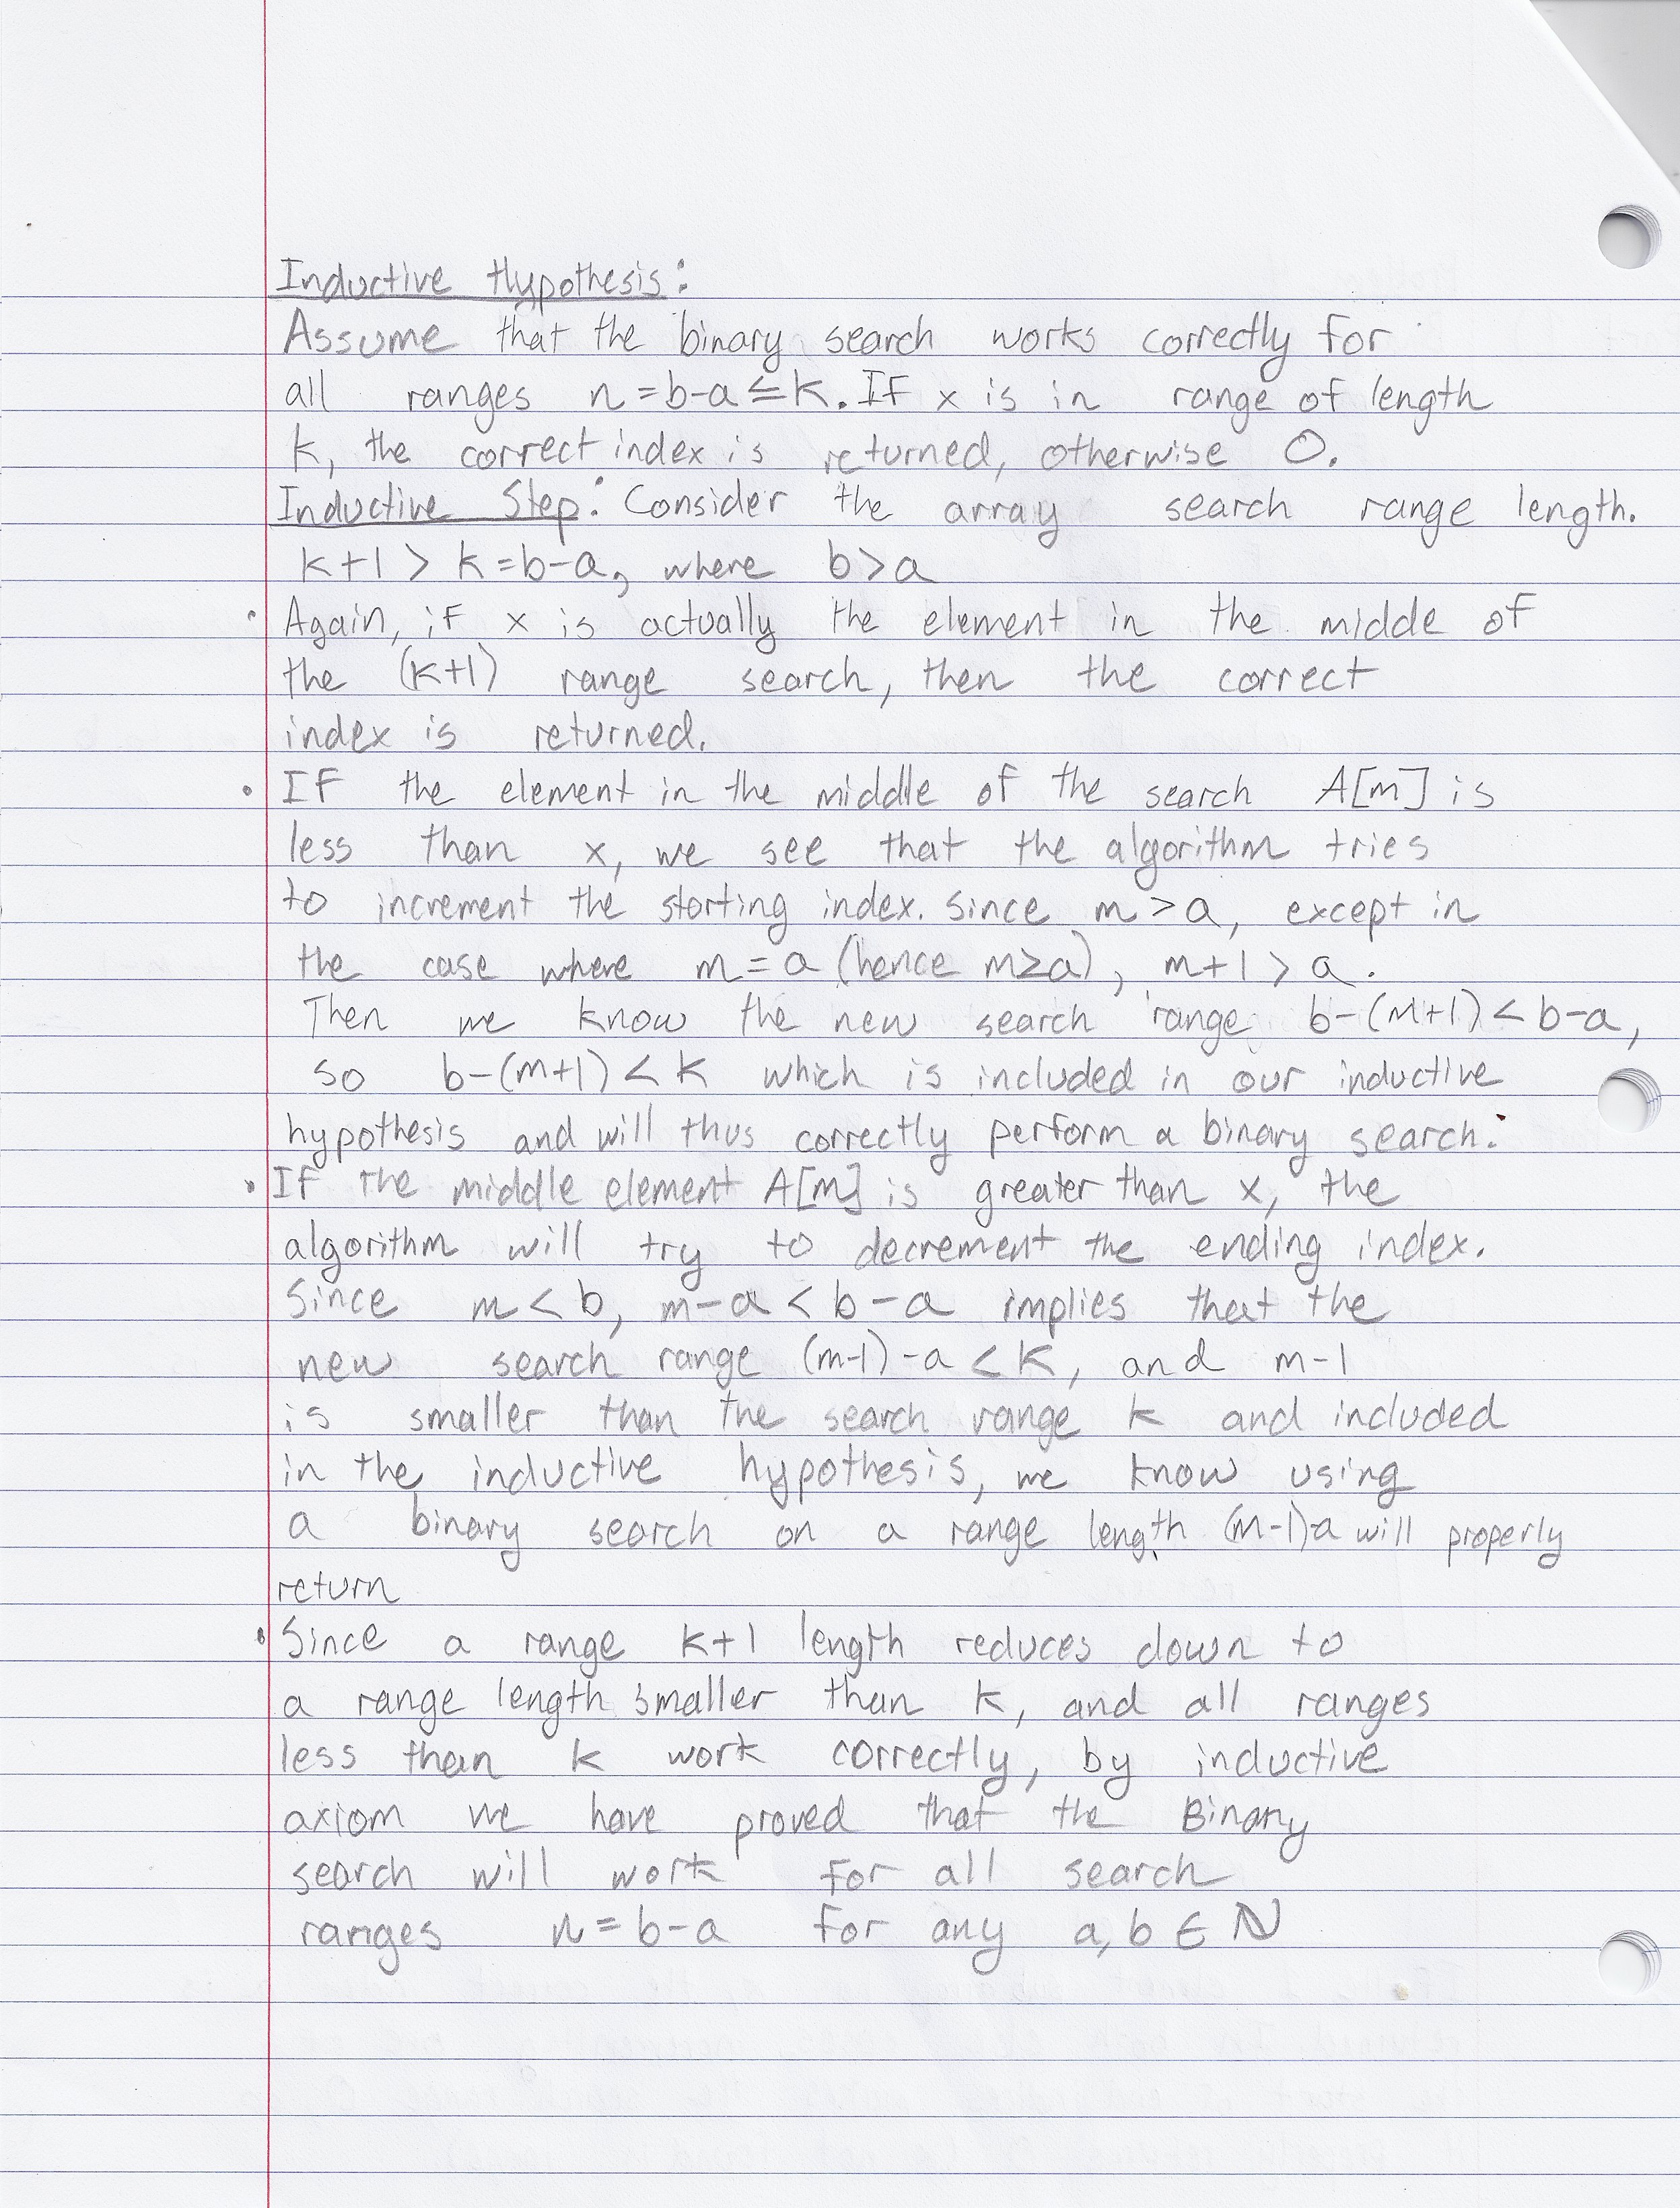 Inductive Hypothesis:
Assume that the binary search works correctly for
all ranges n = b-a ≤ k. If x is in range of length
k, the correct index is returned, otherwise 0.
Inductive Step: Consider the array search range length.
k+1 > k = b-a, where b>a
• Again, if x is actually the element in the midde of
the (k+1) range search, then the correct
index is returned.
• If the element in the middle of the search A[m] is
less than x, we see that the algorithm tries
to increment the starting index. Since m > a, except in
the case where m = a (hence m≥a), m+1 > a.
Then we know the new search range b-(m+1) < b-a,
so b-(m+1) < k which is included in our inductive
hypothesis and will thus correctly perform a binary search.
• If the middle element A[m] is greater than x, the
algorithm will try to decrement the ending index.
Since m < b, m-a < b-a implies that the
new search range (m-1)-a < k, and m-1
is smaller than the search range k and included
in the inductive hypothesis, we know using
a binary search on a range length (m-1)-a will properly
return
• Since a range k+1 length reduces down to
a range length smaller than k, and all ranges
less than k work correctly, by inductive
axiom we have proved that the Binary
search will work for all search
ranges n = b-a for any a, b ∈ ℕ